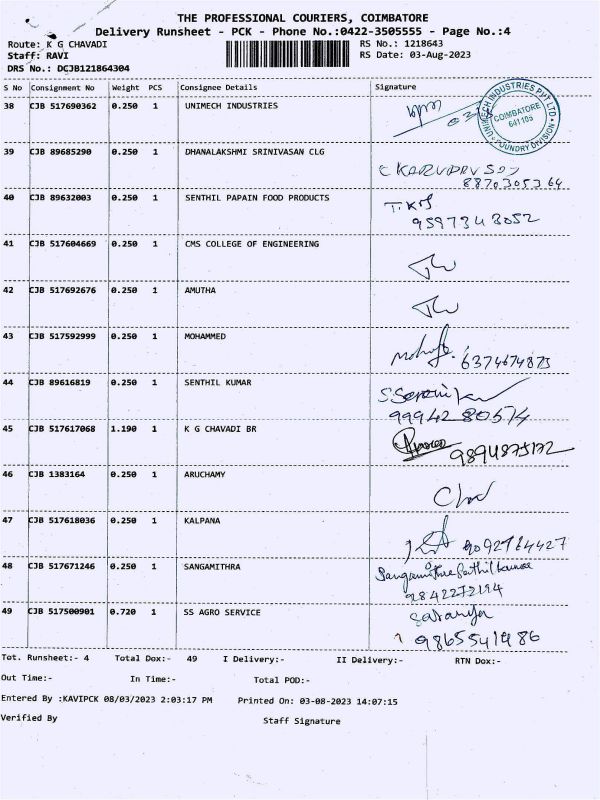 THE PROFESSIONAL COURIERS, COIMBATORE
Delivery Runsheet - PCK - Phone No.:0422-3505555 - Page No.:4
Route: K G CHAVADI RS No.: 1218643
Staff: RAVI RS Date: 03-Aug-2023
DRS No.: DCJB121864304
S No Consignment No Weight PCS Consignee Details Signature
38 CJB 517690362 0.250 1 UNIMECH INDUSTRIES
UNIMECH INDUSTRIES PVT LTD
COIMBATORE
641105
FOUNDRY DIVISION
39 CJB 89685290 0.250 1 DHANALAKSHMI SRINIVASAN CLG
8870305364
40 CJB 89632003 0.250 1 SENTHIL PAPAIN FOOD PRODUCTS
9597343052
41 CJB 517604669 0.250 1 CMS COLLEGE OF ENGINEERING
42 CJB 517692676 0.250 1 AMUTHA
43 CJB 517592999 0.250 1 MOHAMMED
6374674873
44 CJB 89616819 0.250 1 SENTHIL KUMAR
9994280574
45 CJB 517617068 1.190 1 K G CHAVADI BR
9894875172
46 CJB 1383164 0.250 1 ARUCHAMY
47 CJB 517618036 0.250 1 KALPANA
9092764427
48 CJB 517671246 0.250 1 SANGAMITHRA
Sangamithra Senthilkumar
9842272194
49 CJB 517500901 0.720 1 SS AGRO SERVICE
Saranya
9865541986
Tot. Runsheet:- 4 Total Dox:- 49 I Delivery:- II Delivery:- RTN Dox:-
Out Time:- In Time:- Total POD:-
Entered By :KAVIPCK 08/03/2023 2:03:17 PM Printed On: 03-08-2023 14:07:15
Verified By Staff Signature